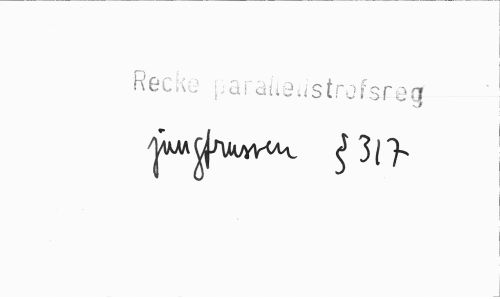 Recke parallellstrofsreg
jungfrussen § 317